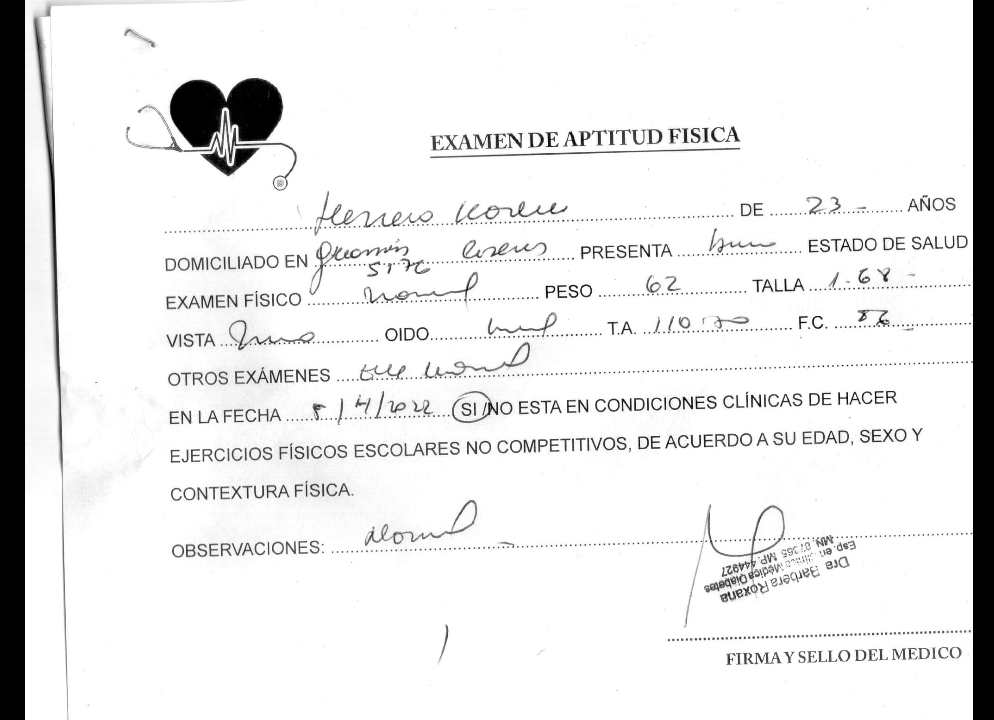 EXAMEN DE APTITUD FISICA
Herrero DE 23 - AÑOS
DOMICILIADO EN 5176 PRESENTA ESTADO DE SALUD
EXAMEN FÍSICO Normal PESO 62 TALLA 1.68 -
VISTA OIDO T.A. 110 70 F.C.
OTROS EXÁMENES Normal
EN LA FECHA 8/4/2022 SI /NO ESTA EN CONDICIONES CLÍNICAS DE HACER
EJERCICIOS FÍSICOS ESCOLARES NO COMPETITIVOS, DE ACUERDO A SU EDAD, SEXO Y
CONTEXTURA FÍSICA.
OBSERVACIONES: Normal -
Dra Barbera Roxana
Esp. en Clínica Médica Diabetes
MN. 87365 MP. 444927
FIRMA Y SELLO DEL MEDICO